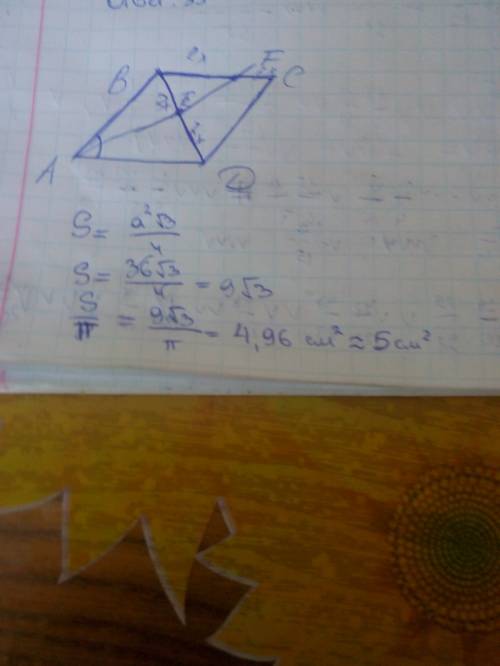 B
F
C
A
D
S = a²√3 / 4
S = 36√3 / 4 = 9√3
S / π = 9√3 / π = 4,96 см² ≈ 5 см²